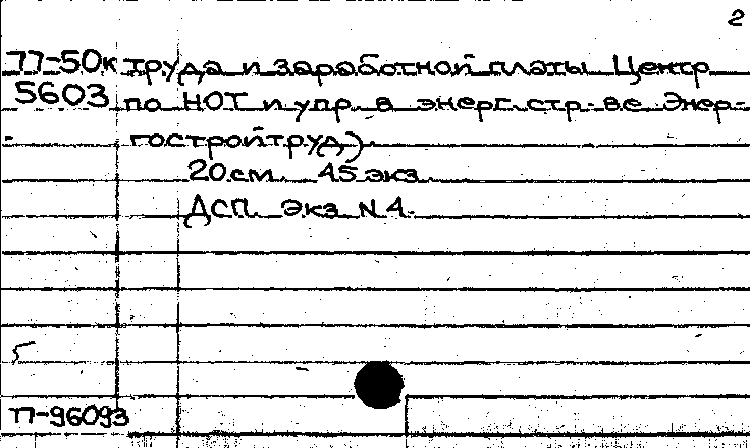 2
77-50к труда и заработной платы Центр
5603 по НОТ и упр. в энерг. стр-ве Энер-
гостройтруд).
20 см. 45 экз.
ДСП. Экз. N 4.
Б
77-96093